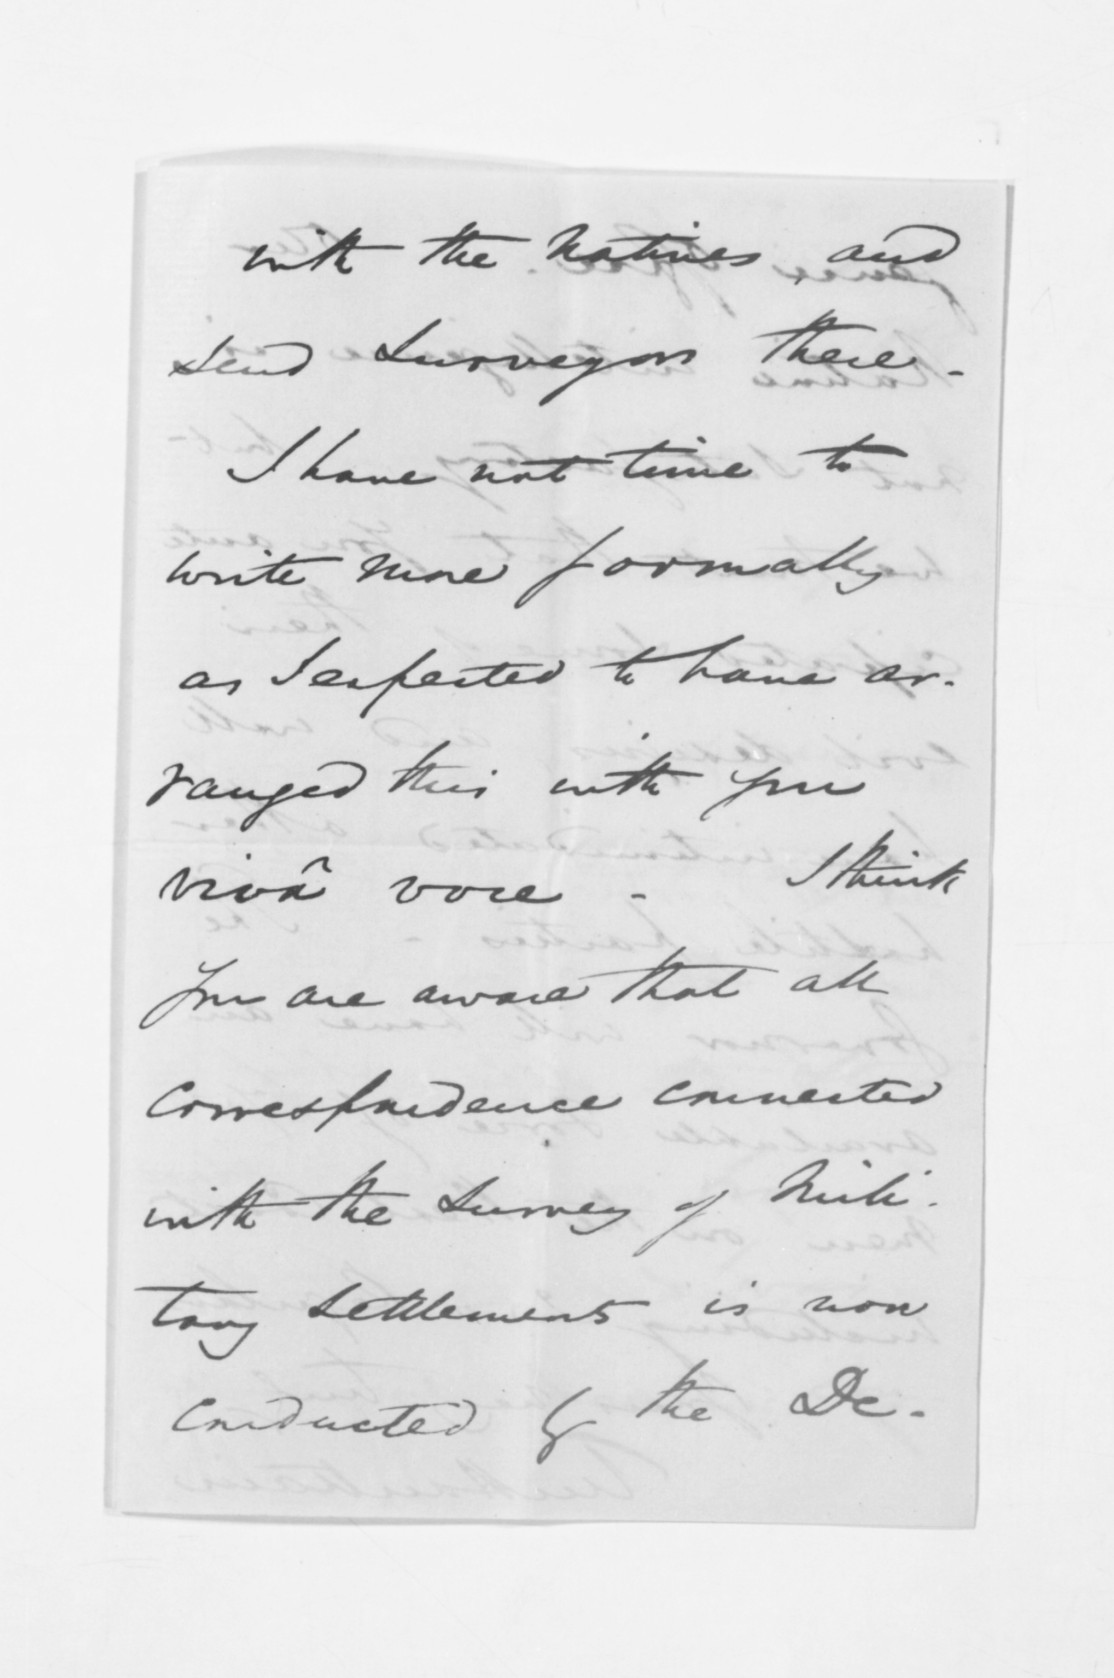 with the Natives, and
send Surveyors there -
I have not time to
write more formally
as I expected to have ar-
ranged this with you
vivâ voce - I think
you are aware that all
correspondence connected
with the Survey of Mili-
tary Settlements is now
conducted by the De-